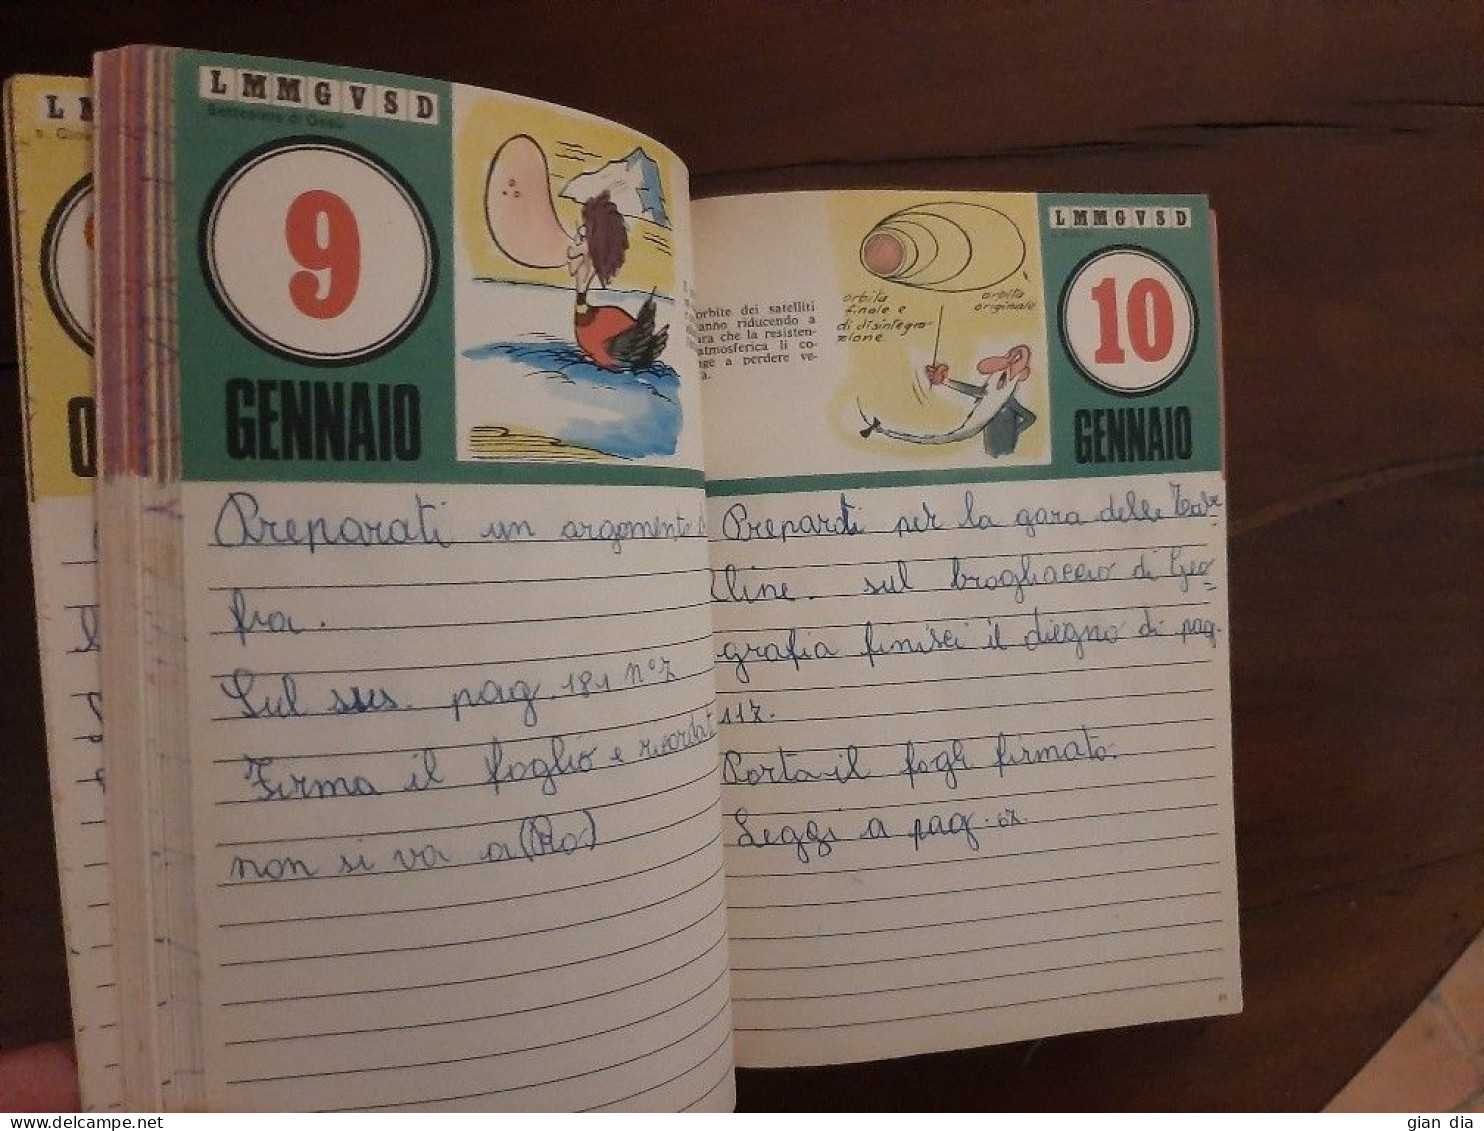 L M M G V S D
Battesimo di Gesù
9
GENNAIO
Preparati un argomento
fra.
Sul sus. pag. 181 n° 7
Firma il foglio e ricordati
non si va a (Ro)
orbite dei satelliti
anno riducendo a
ura che la resisten-
atmosferica li co-
ge a perdere ve-
à.
orbita
finale e
di disintegra-
zione.
orbita
originale
L M M G V S D
10
GENNAIO
Preparati per la gara delle
line. sul brogliaccio di Geo
grafia finisci il diegno di pag.
117.
Porta il fogli firmato.
Leggi a pag. 67.
L M
s. Giov
gian dia